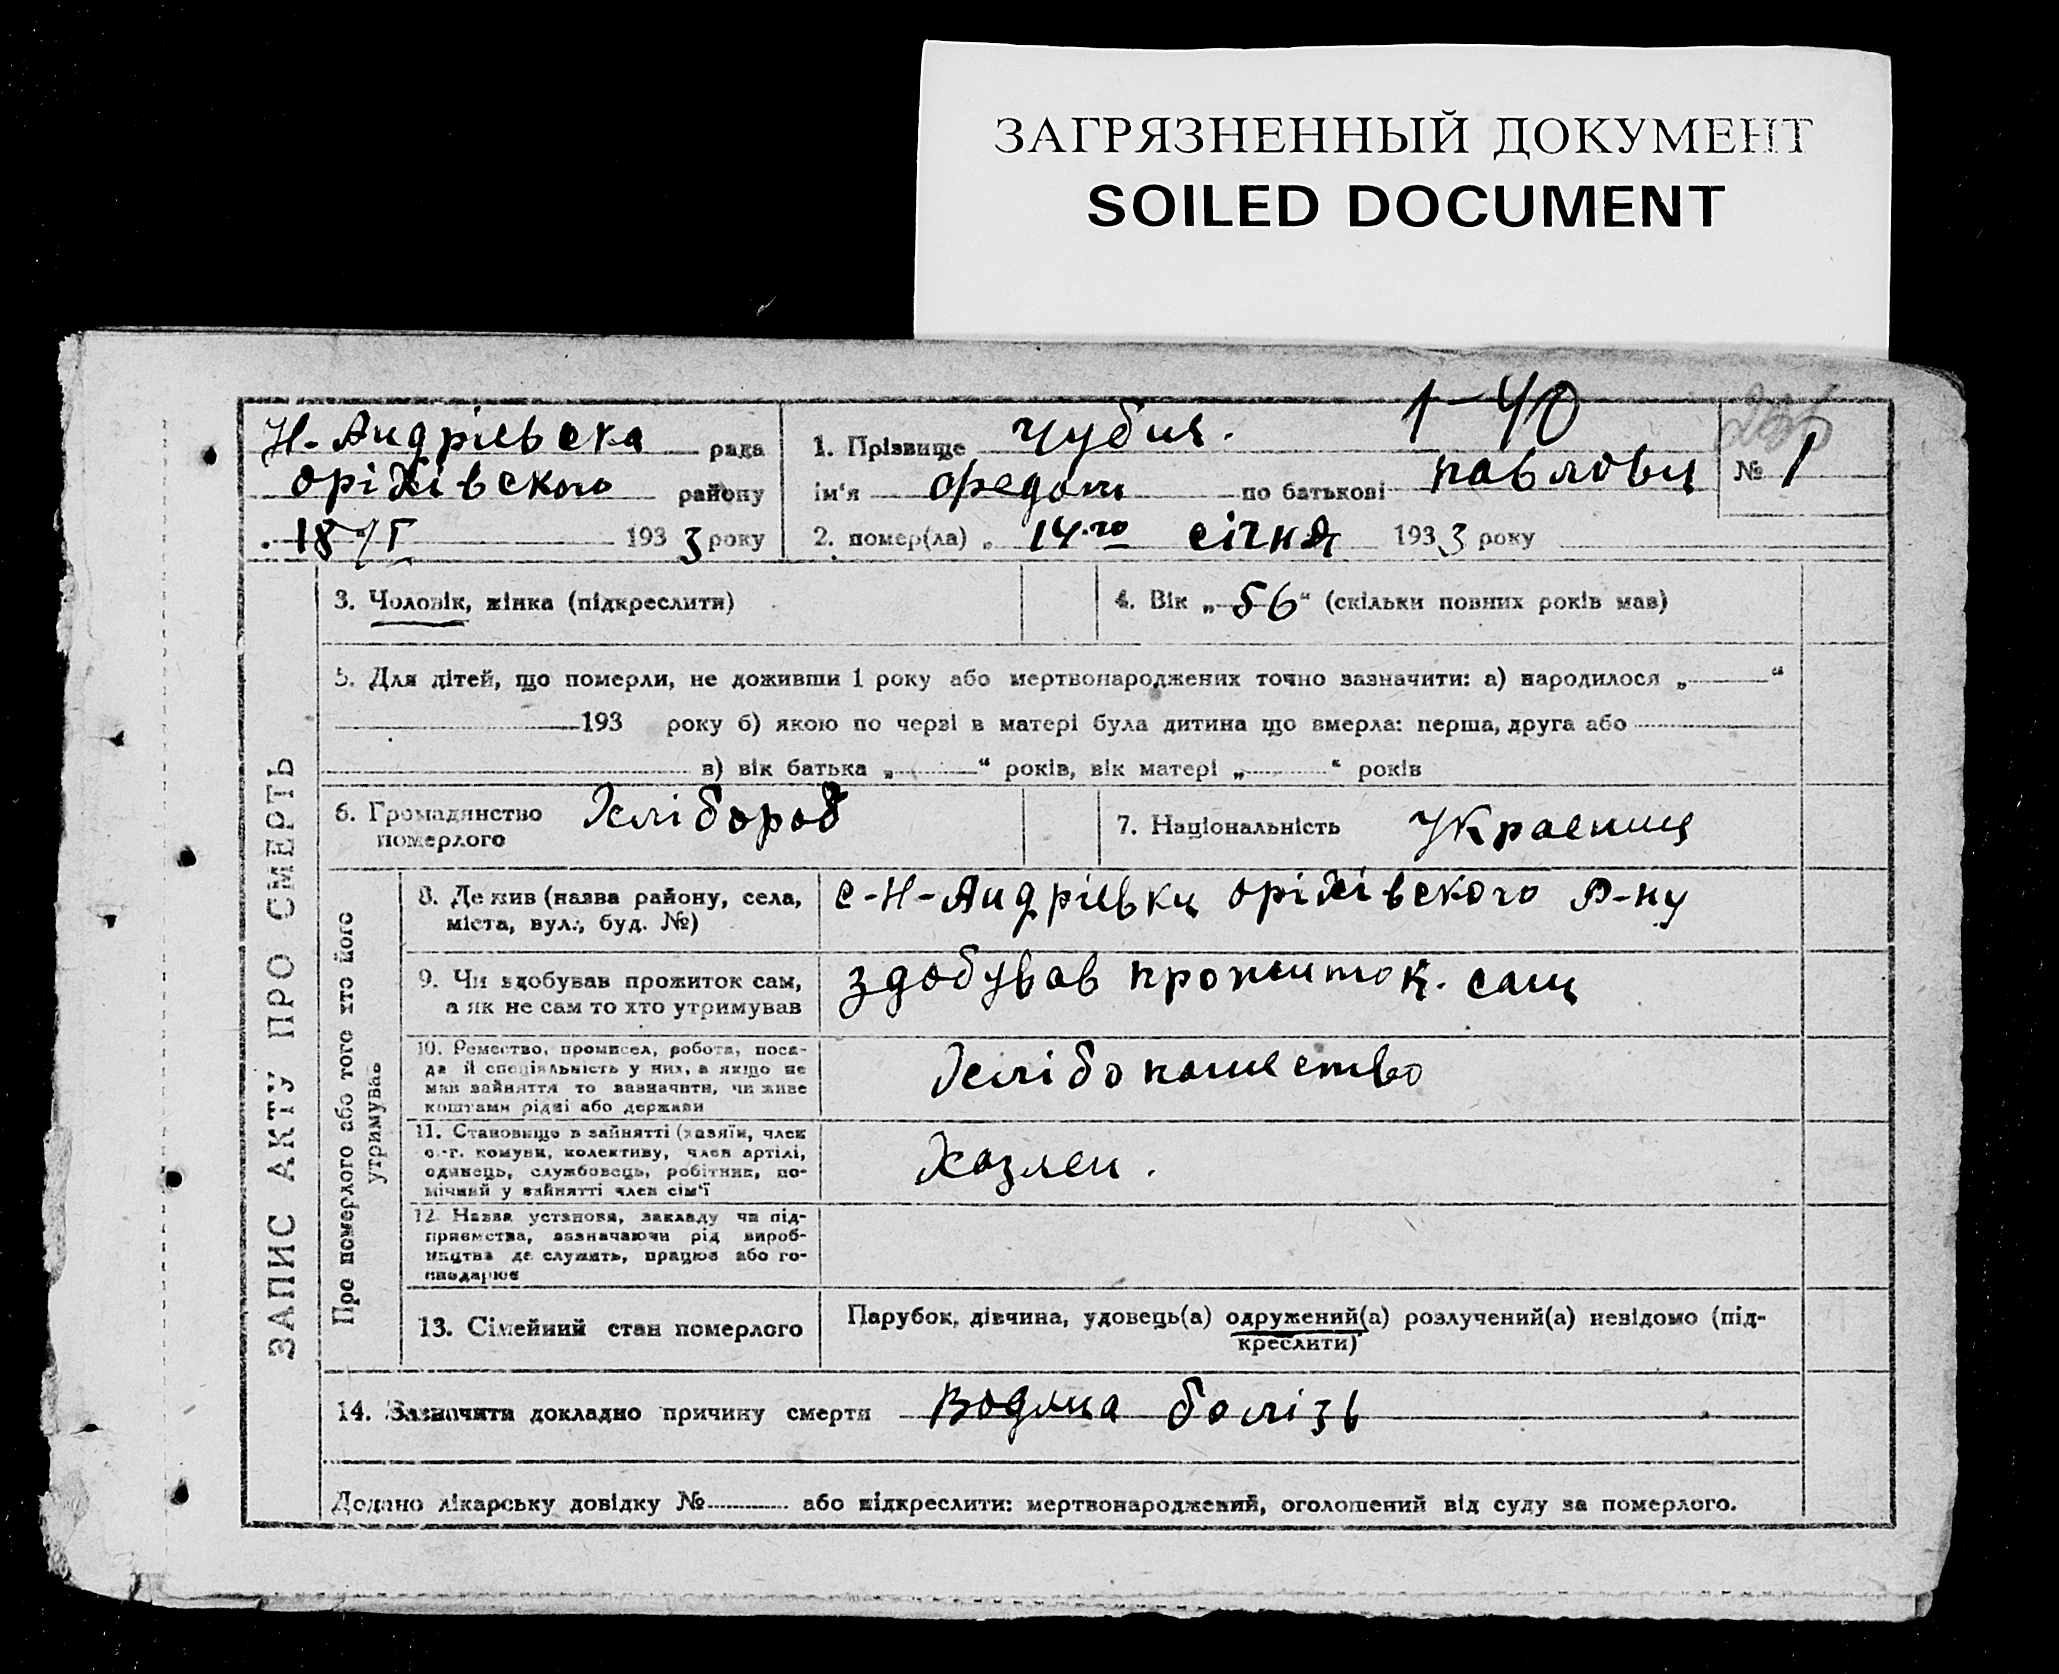 ЗАГРЯЗНЕННЫЙ ДОКУМЕНТ
SOILED DOCUMENT
1-40
Н-Андрієвска рада
оріхівского району
18/I 1933 року
1. Прізвище Чубия.
ім'я Федот по батькові павлови
№ 1
2. помер(ла) „ 14.го січня 1933 року
ЗАПИС АКТУ ПРО СМЕРТЬ
3. Чоловік, жінка (підкреслити)
4. Вік „56“ (скільки повних років мав)
5. Для дітей, що померли, не доживши 1 року або мертвонароджених точно зазначити: а) народилося „ “
193 року б) якою по черзі в матері була дитина що вмерла: перша, друга або
в) вік батька „ “ років, вік матері „ “ років
6. Громадянство
померлого
Хлібороб
7. Національність Украениц
Про померлого або того хто його
утримував
8. Де жив (назва району, села,
міста, вул., буд. №)
с-Н-Андрієвки оріхівского р-ну
9. Чи здобував прожиток сам,
а як не сам то хто утримував
здобував прожиток. сам
10. Ремество, промисел, робота, поса-
да й спеціяльність у них, а якщо не
мав зайняття то зазначити, чи живе
коштами рідні або держави
Хлібопашество
11. Становище в зайнятті (хазяїн, член
с.-г. комуни, колективу, член артілі,
одинець, службовець, робітник, по-
мічний у зайнятті член сім'ї
Хазяен.
12. Назва установи, закладу чи під-
приємства, зазначаючи рід вироб-
ництва де служить, працює або го-
сподарює
13. Сімейний стан померлого
Парубок, дівчина, удовець(а) одружений(а) розлучений(а) невідомо (під-
креслити)
14. Зазначити докладно причину смерти Водяна болізь
Додано лікарську довідку № або підкреслити: мертвонароджений, оголошений від суду за померлого.